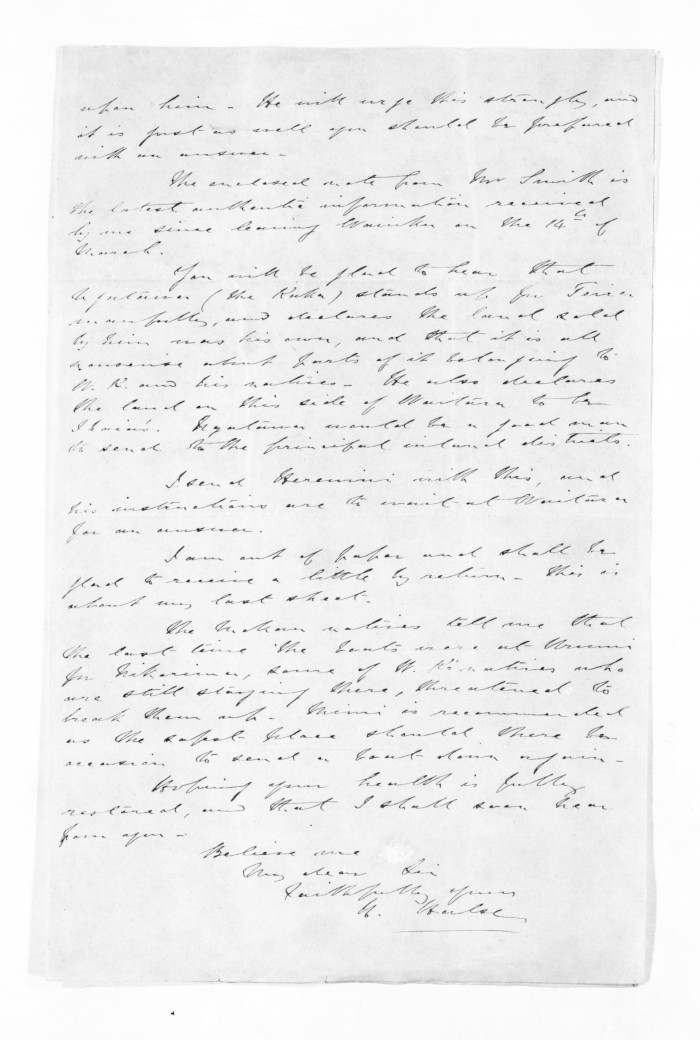 upon him - He will urge this strongly, and
it is just as well you should be prepared
with an answer -
The enclosed note from Mr Smith is
the latest authentic information received
by me since leaving on the 14th of
March.
You will be glad to hear that
Ngatairwa (the Kaka) stands up for Teira
manfully, and declares the land sold
by him was his own, and that it is all
nonsense about parts of it belonging to
W. K. and his natives - He also declares
the land on this side of Waitara to be
Ihaia's. Ngatairwa would be a good man
to send to the principal inland districts.
I send Heremini with this, and
his instructions are to wait at Waitara
for an answer.
I am out of paper and shall be
glad to receive a little by return - This is
about my last sheet.
The Mokau natives tell me that
the last time the boats were at Urenui
for, some of W. K's natives who
are still staying there, threatened to
break them up - Mimi is recommended
as the safest place should there be
occasion to send a boat down again -
Hoping your health is fully
restored, and that I shall soon hear
from you -
Believe me
My dear Sir
Faithfully yours
H. Halse